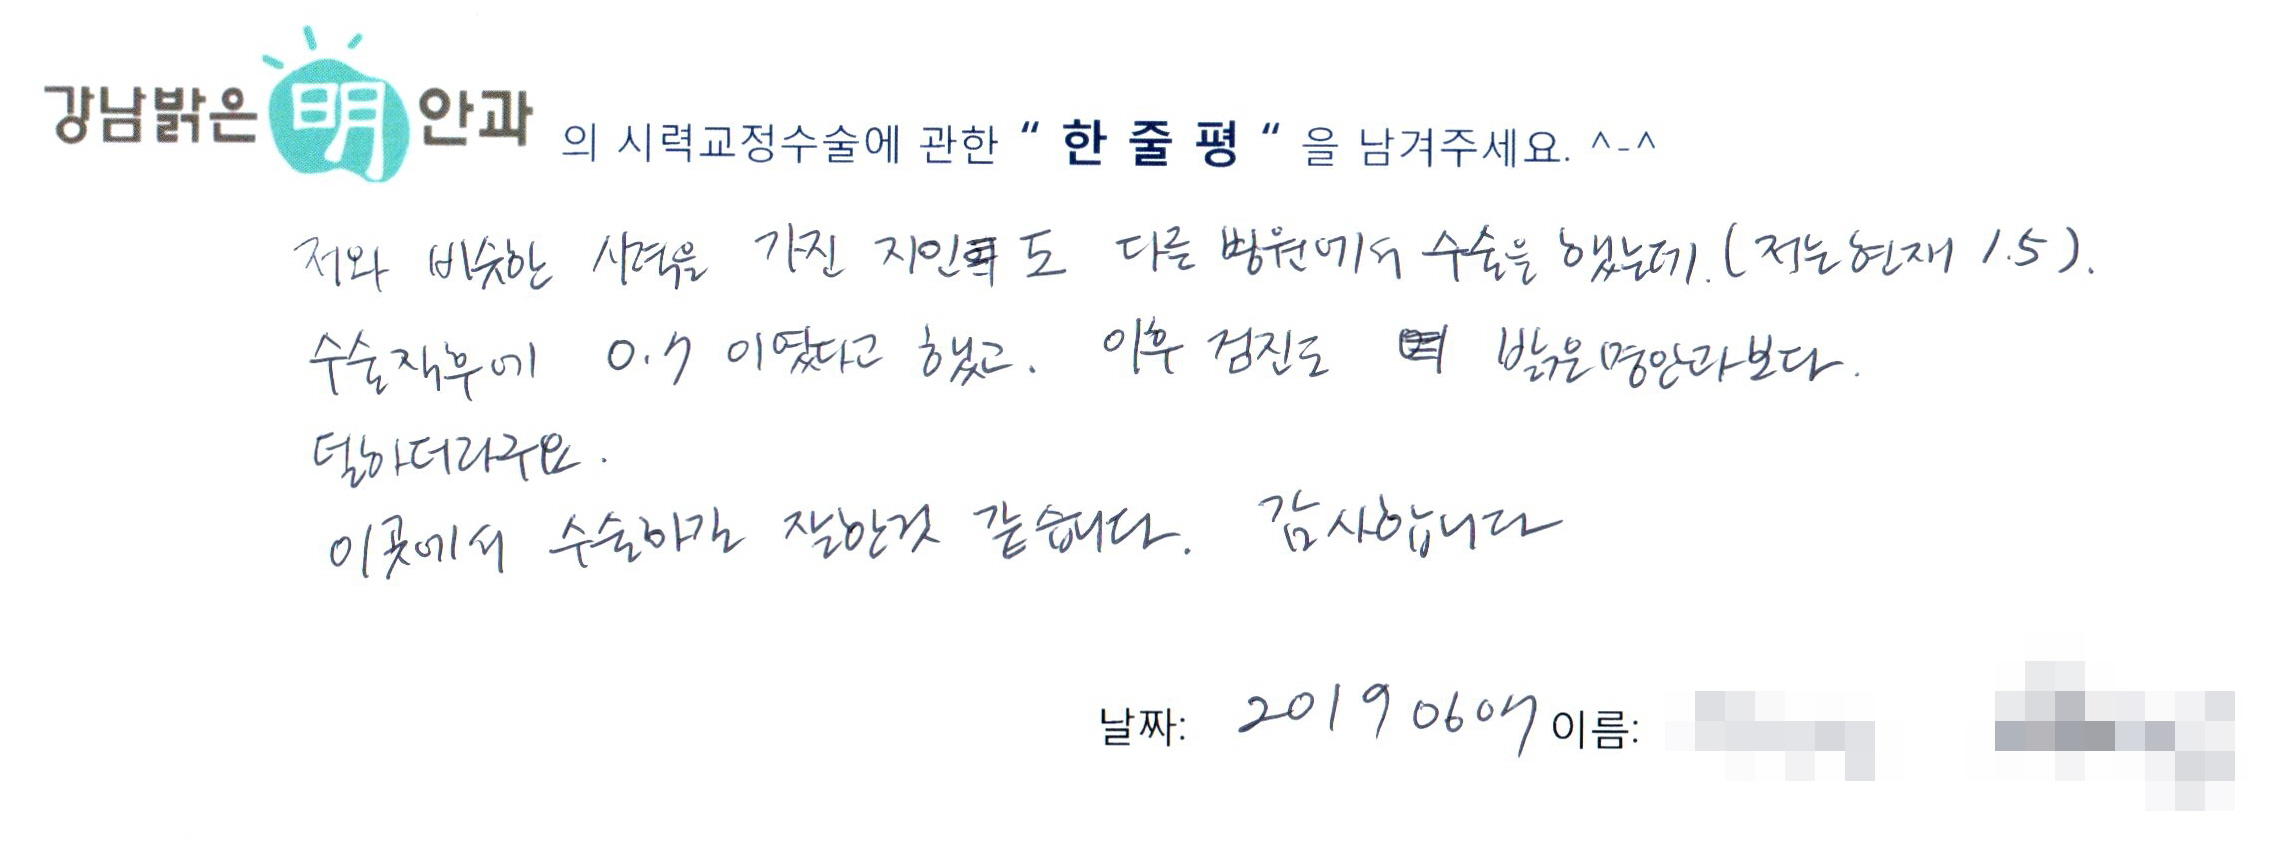 강남밝은明안과 의 시력교정수술에 관한 “ 한 줄 평 “ 을 남겨주세요. ^-^
저와 비슷한 시력을 가진 지인도 다른 병원에서 수술을 했는데.(저는현재 1.5).
수술직후에 0.7 이었다고 했고. 이후 검진도 밝은명안과보다.
덜하더라구요.
이곳에서 수술하길 잘한것 같습니다. 감사합니다
날짜: 2019 0607 이름: